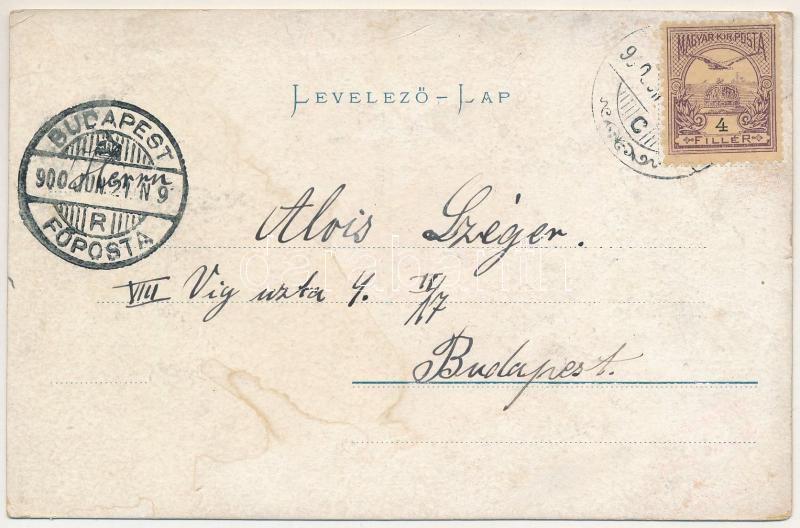 LEVELEZŐ-LAP
MAGYAR KIR. POSTA
4
FILLÉR
BUDAPEST
900 JUN 21 N 9
R
FŐPOSTA
C
Herrn
Alois Széger.
VIII Vig uzta 4. II/17
Budapest.